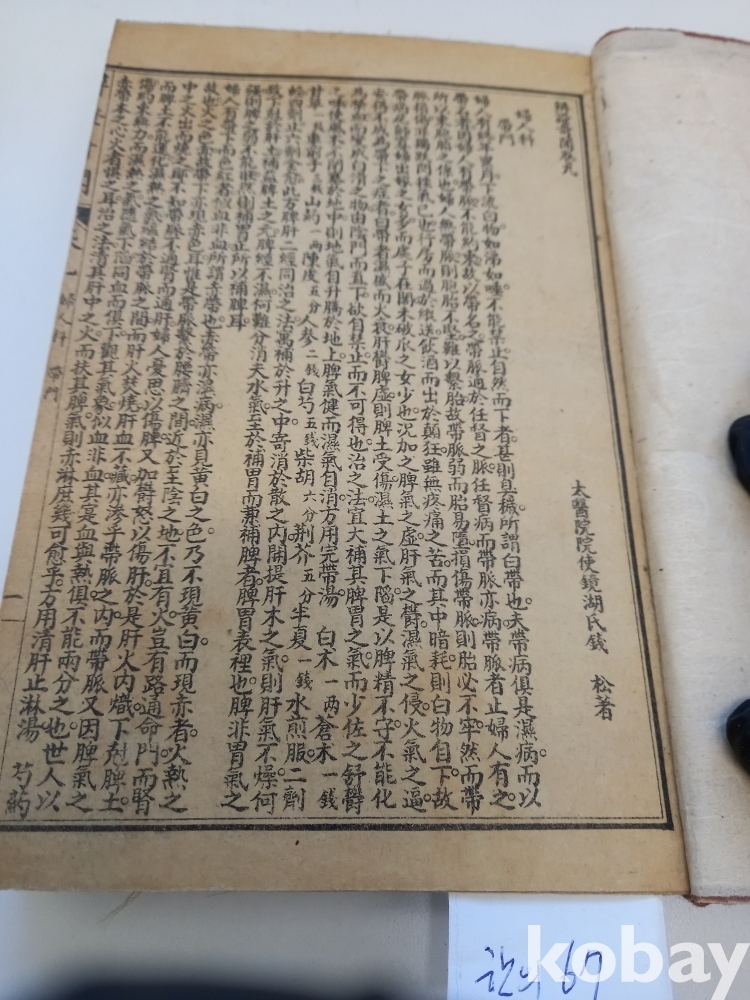 辨證奇聞卷九
太醫院院使鏡湖氏錢　松著
婦人科
帶門
婦人有終年累月下流白物如涕如唾不能禁止自然而下者甚則臭穢所謂白帶也夫帶病俱是濕病而以
帶名者因婦人有帶脈不能約束故以帶名之帶脈通於任督之脈任督病而帶脈亦病帶脈者止婦人有之
所以約束胞胎之係也婦人無帶脈則胞胎不堅難以繫胎故帶脈弱而胎易隕損傷帶脈則胎必不牢然而帶
脈損傷非獨跌閃挫氣已也行房而過於縱送飲酒而出於顛狂雖無疼痛之苦而其中暗耗則白物自下故
帶病尼師寡婦出嫁之女多而處子在閨未破瓜之女少也況加之脾氣之虛肝氣之鬱濕氣之侵火氣之逼
安得不成為帶下之症者白帶者濕盛而火衰肝鬱脾虛則脾土受傷濕土之氣下陷是以脾精不守不能化
為榮血而變成白滑之物由陰門而直下欲自禁止而不可得也治之法宜大補其脾胃之氣而少佐之舒鬱
之味使風木不閉塞於地中則地氣自升騰於地上脾氣健而濕氣自消方用完帶湯　白木一兩蒼木一錢
甘草一錢車前子三錢山葯一兩陳皮五分人參二錢白芍五錢柴胡六分荊芥五分半夏一錢水煎服二劑
輕四劑止六劑全愈此方脾肝二經同治之法寓補於升之中寄消於散之內開提肝木之氣則肝氣不燥何
致下尅於脾土補益脾土之元脾經不濕何難分消夫水氣至於補胃而兼補脾者脾胃表裡也脾非胃氣之
強則脾之弱不能旺然則補胃正所以補脾耳
婦人有帶下而色紅者似血非血所謂赤帶也赤帶亦濕病濕亦見黃白之色乃不現黃白而現赤者火熱之
故也火之色赤故帶下亦現赤色耳惟是帶脈繫於腰臍之間近於至陰之地不宜有火豈有路通命門而腎
中之火出而燒之耶不知帶脈不通腎而通肝婦人憂思以傷脾又加鬱怒以傷肝於是肝火內熾下剋脾土
而脾土不能運化濕熱之氣蘊結於帶脈之間而肝火焚燒肝血不藏亦滲乎帶脈之內而帶脈又因脾氣之
傷約束無力而濕熱之氣隨氣下陷同血而俱下觀其氣象似血非血其是血與熱俱不能兩分之也世人以
赤帶木之心火者悞之耳治之法清其肝中之火而扶其脾氣則赤淋庶幾可愈乎方用清肝止淋湯　芍葯
婦人科　帶門
一
67
kobay